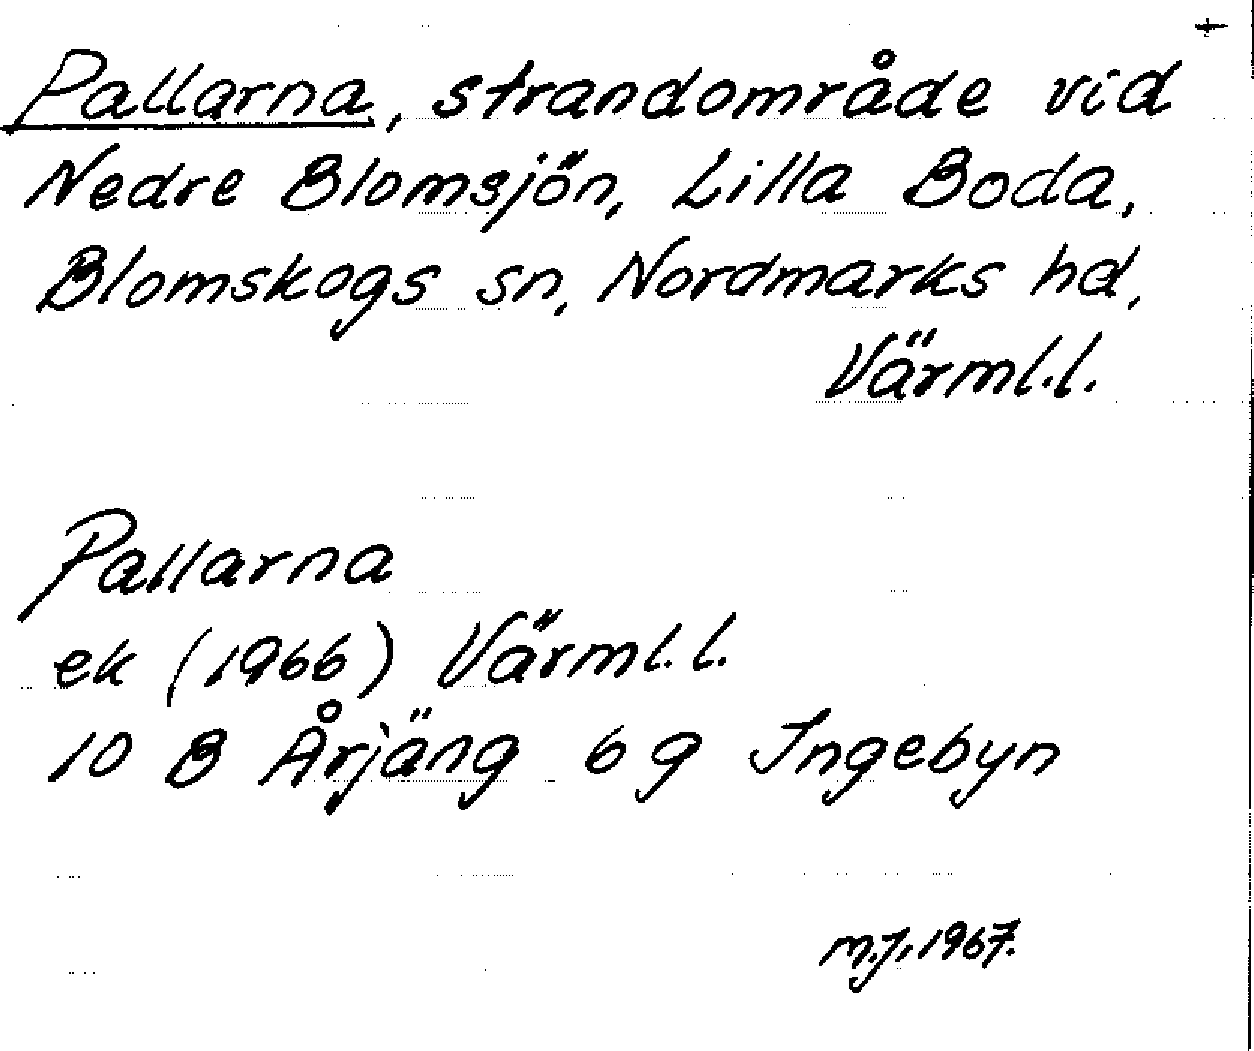 +
Pallarna, strandområde vid
Nedre Blomsjön, Lilla Boda,
Blomskogs sn, Nordmarks hd,
Värml.l.
Pallarna
ek (1966) Värml.l.
10 B Årjäng 6 g Ingebyn
M.J. 1967.